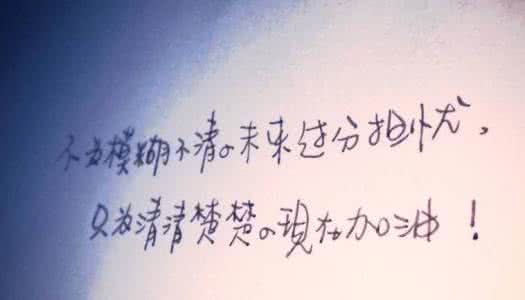 不为模糊不清的未来过分担忧，
只为清清楚楚的現在加油！